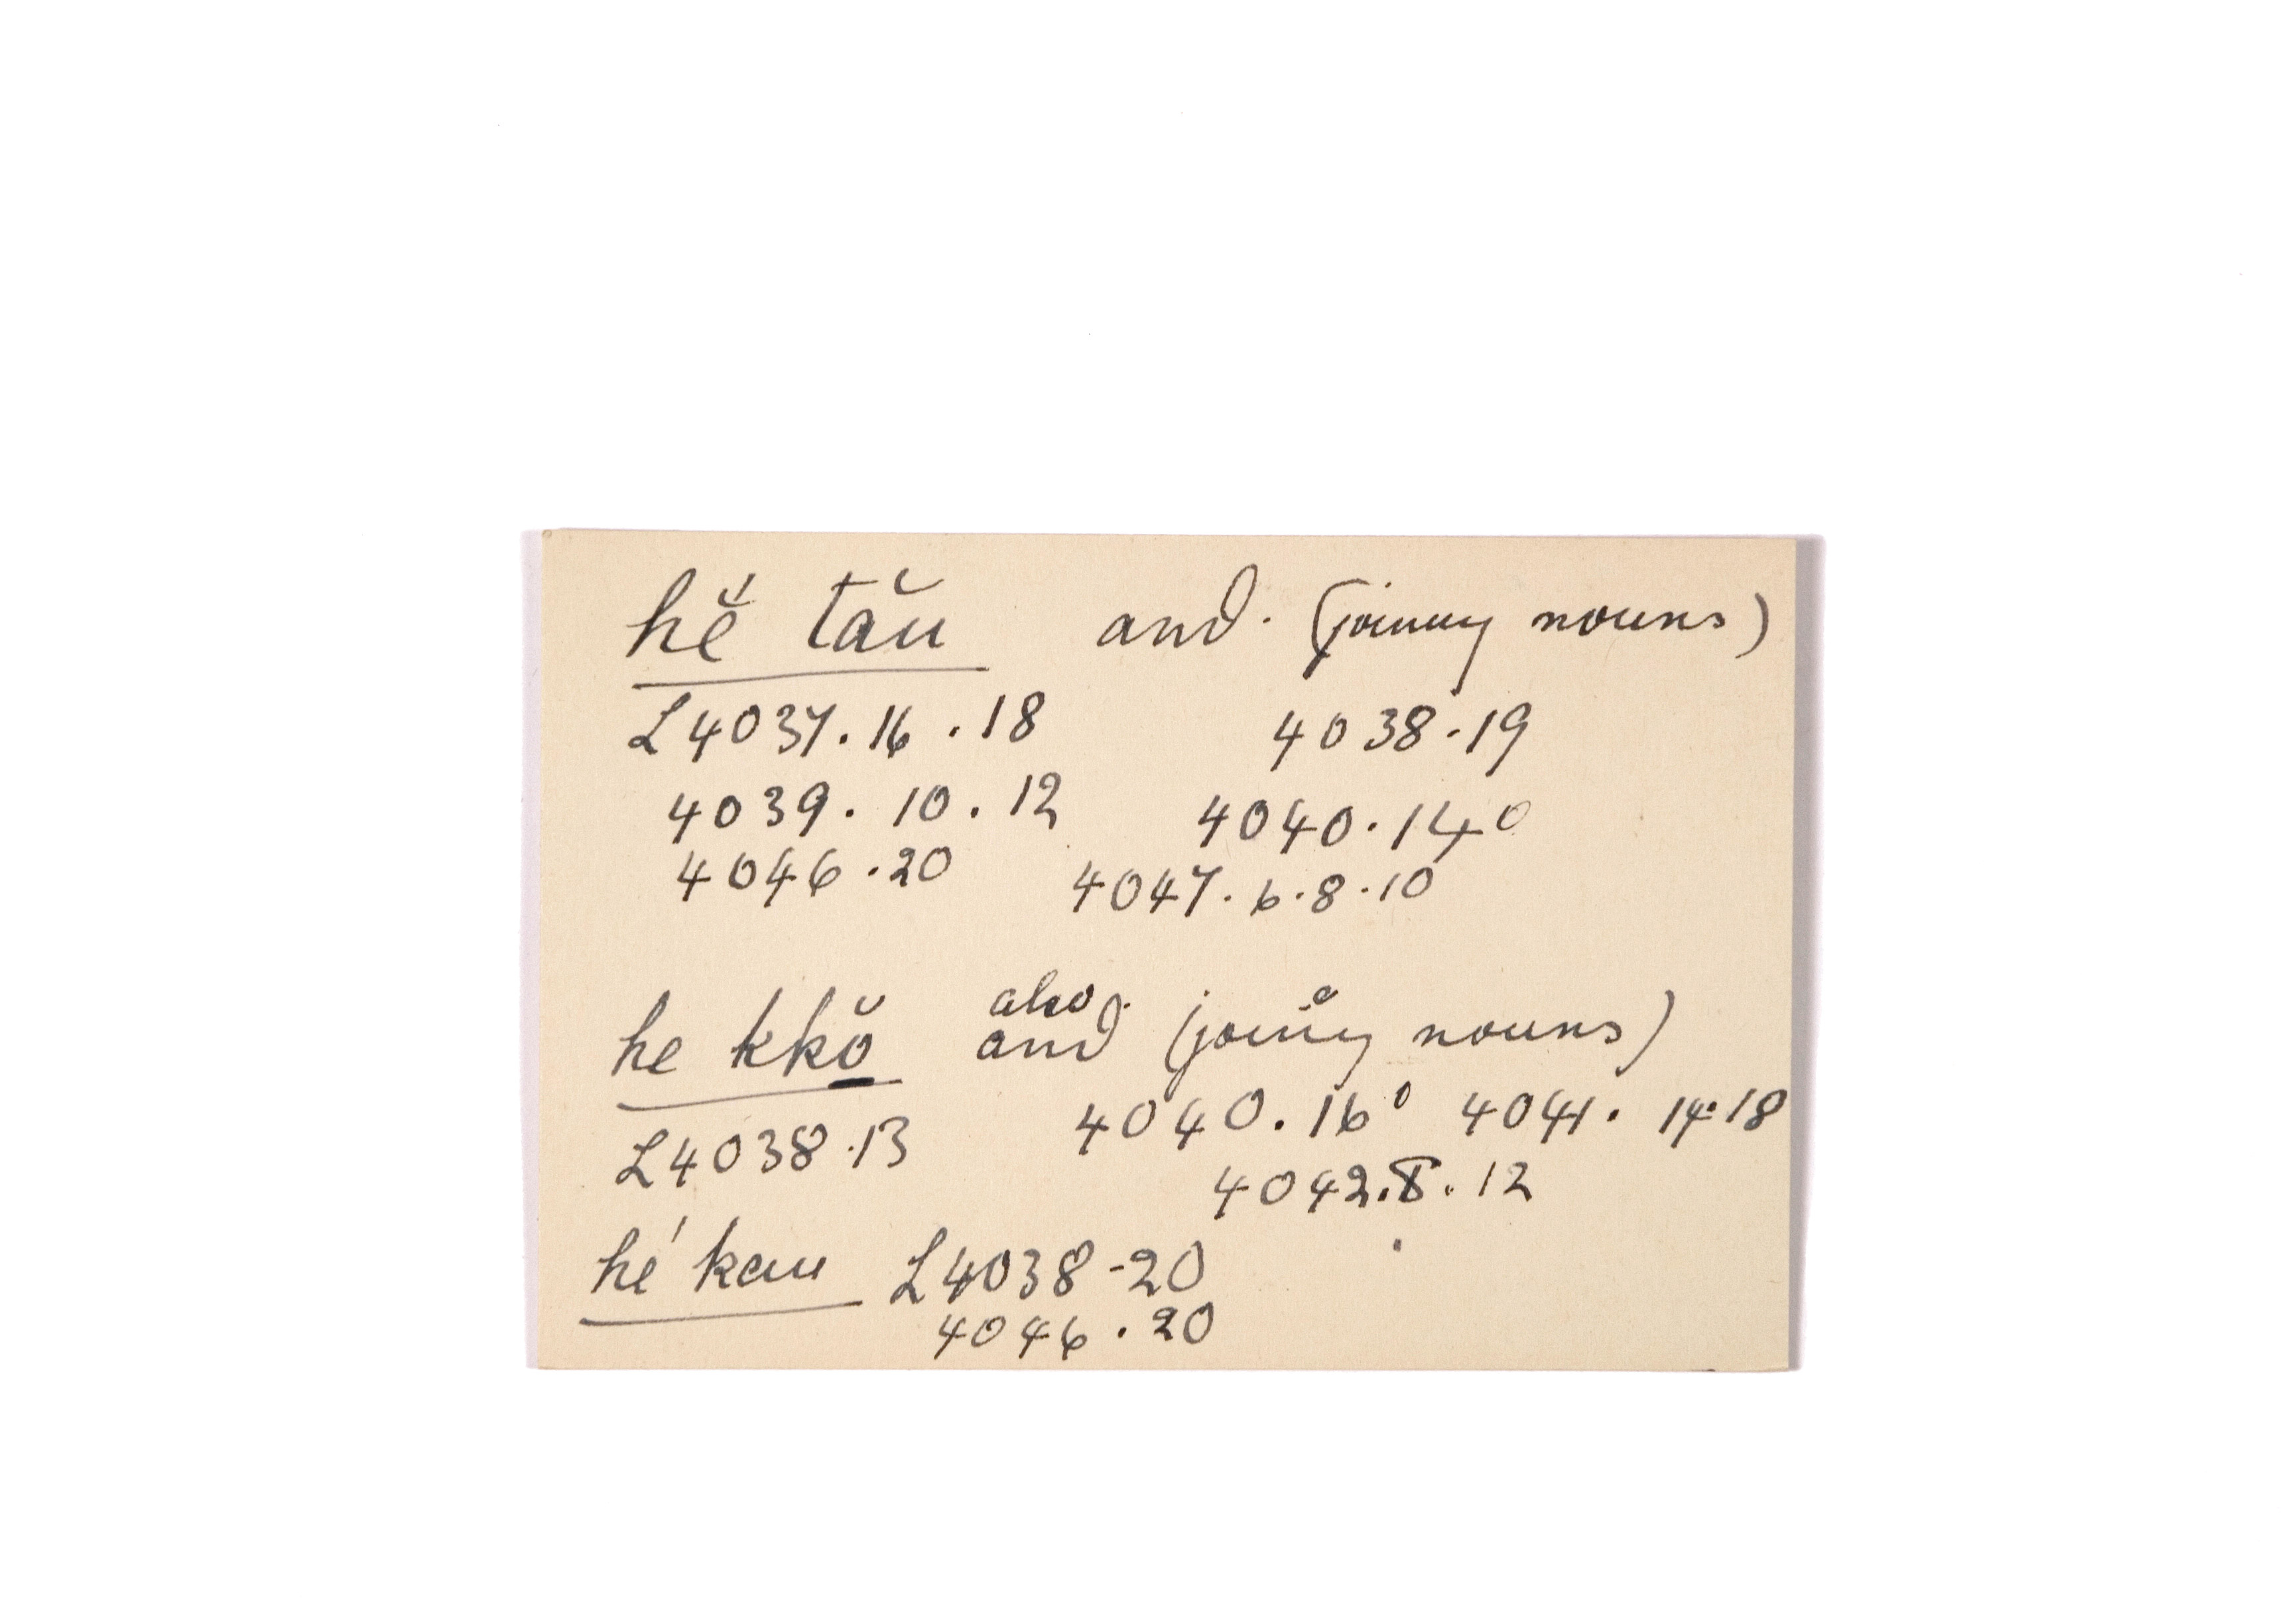 hĕ́ tăŭ and. (joining nouns)
L4037.16.18 4038.19
4039.10.12 4040.14⁰
4046.20 4047.6.8.10
also.
he kkŏ̱ and (joining nouns)
L4038.13 4040.16⁰ 4041. 14.18
4042.8.12
hé kau L4038-20
4046.20